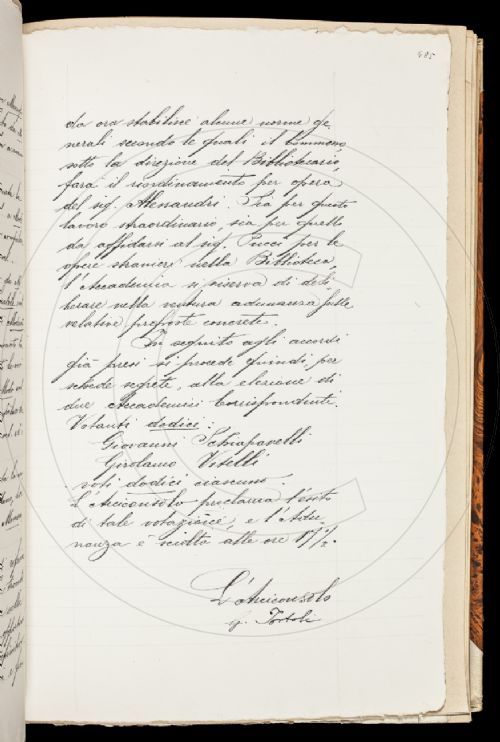 685
da ora stabilisce alcune norme ge-
nerali secondo le quali il Commesso
sotto la direzione del Bibliotecario,
farà il riordinamento per opera
del sig. Alessandri. Sia per questo
lavoro straordinario, sia per quello
da affidarsi al sig. Pucci per le
opere straniere nella Biblioteca,
l'Accademia si riserva di deli-
berare nella ventura adunanza sulle
relative proposte concrete.
In seguito agli accordi
già presi si procede quindi, per
schede segrete, alla elezione di
due Accademici Corrispondenti.
Votanti dodici:
Giovanni Schiaparelli
Girolamo Vitelli
voti dodici ciascuno.
L'Arciconsolo proclama l'esito
di tale votazione, e l'Adu-
nanza è sciolta alle ore
L'Arciconsolo
G. Tortoli